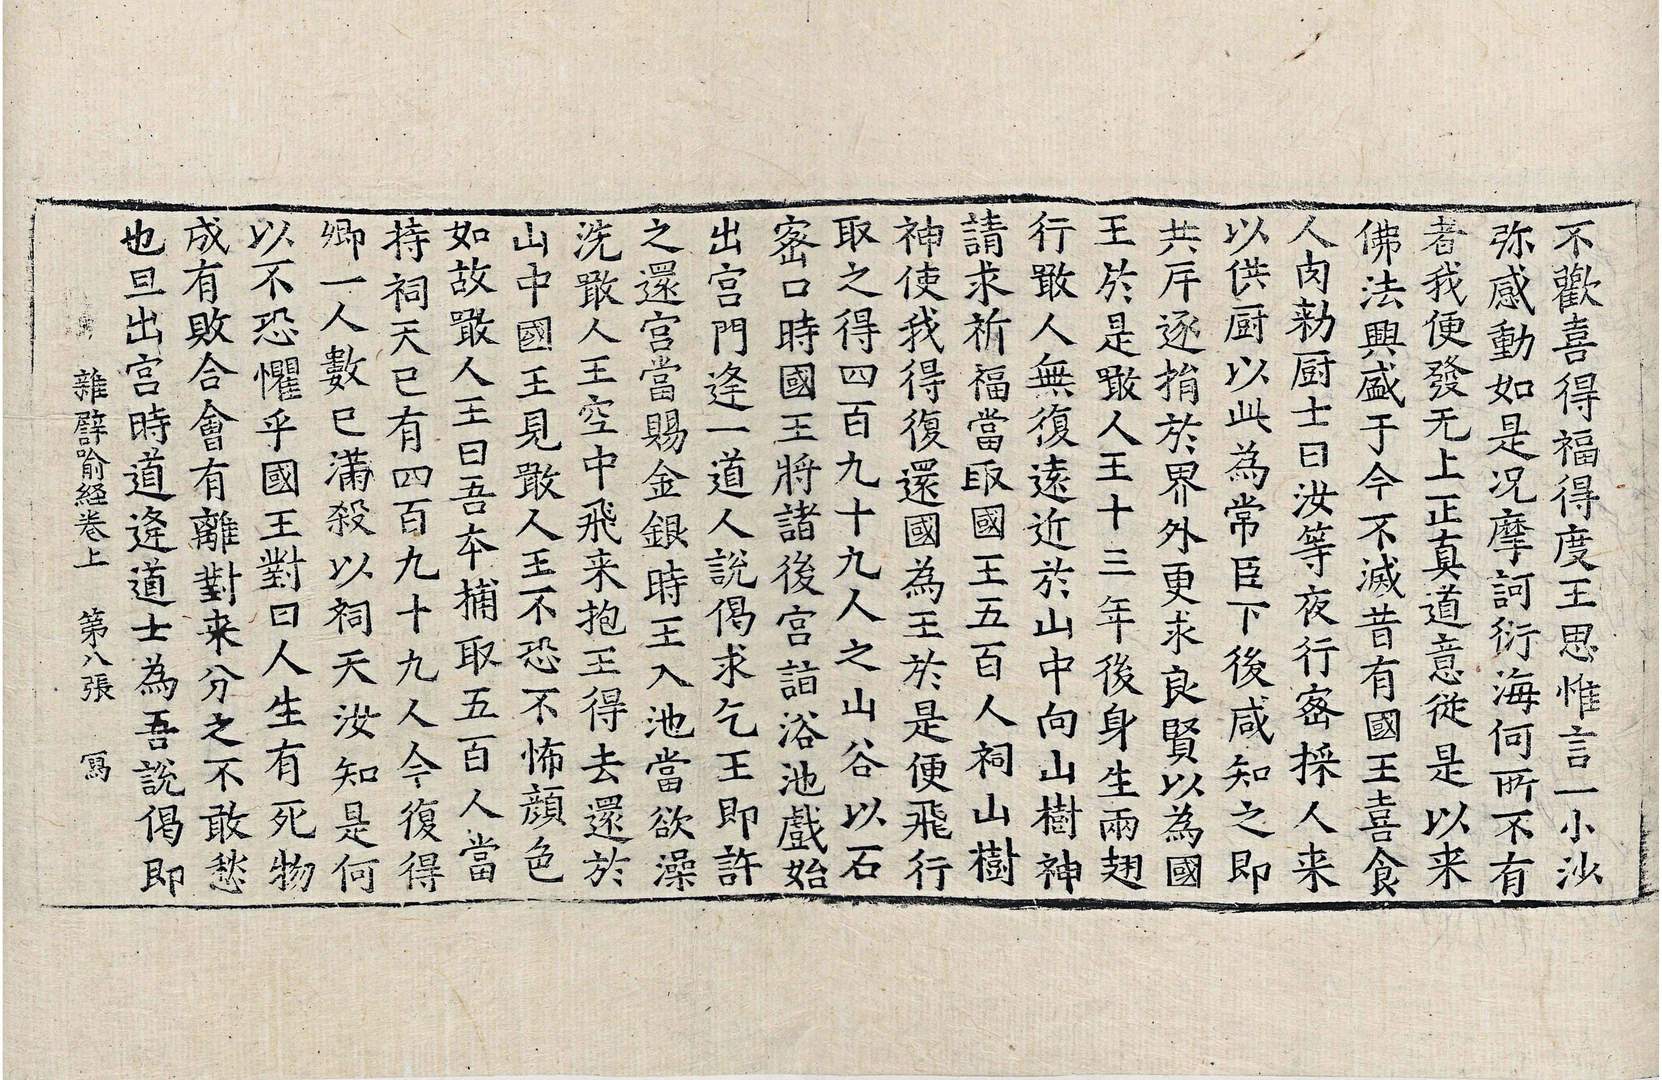 不歡喜得福得度王思惟言一小沙
弥感動如是况摩訶衍海何所不有
者我便發无上正真道意従是以来
佛法興盛于今不滅昔有國王喜食
人肉勑厨士曰汝等夜行密採人来
以供厨以此為常臣下後咸知之即
共斥逐捐於界外更求良賢以為國
王於是噉人王十三年後身生兩翅
行噉人無復遠近於山中向山樹神
請求祈福當取國王五百人祠山樹
神使我得復還國為王於是便飛行
取之得四百九十九人之山谷以石
密口時國王将諸後宫詣浴池戲始
出宫門逢一道人說偈求乞王即許
之還宫當賜金銀時王入池當欲澡
洗噉人王空中飛来抱王得去還於
山中國王見噉人王不恐不怖顔色
如故噉人王曰吾本捕取五百人當
持祠天已有四百九十九人今復得
卿一人數已滿殺以祠天汝知是何
以不恐懼乎國王對曰人生有死物
成有敗合會有離對来分之不敢愁
也旦出宫時道逢道士為吾說偈即
雜譬喻経卷上 第八張 寫